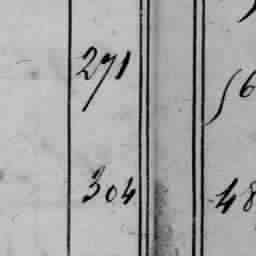 271
304
48